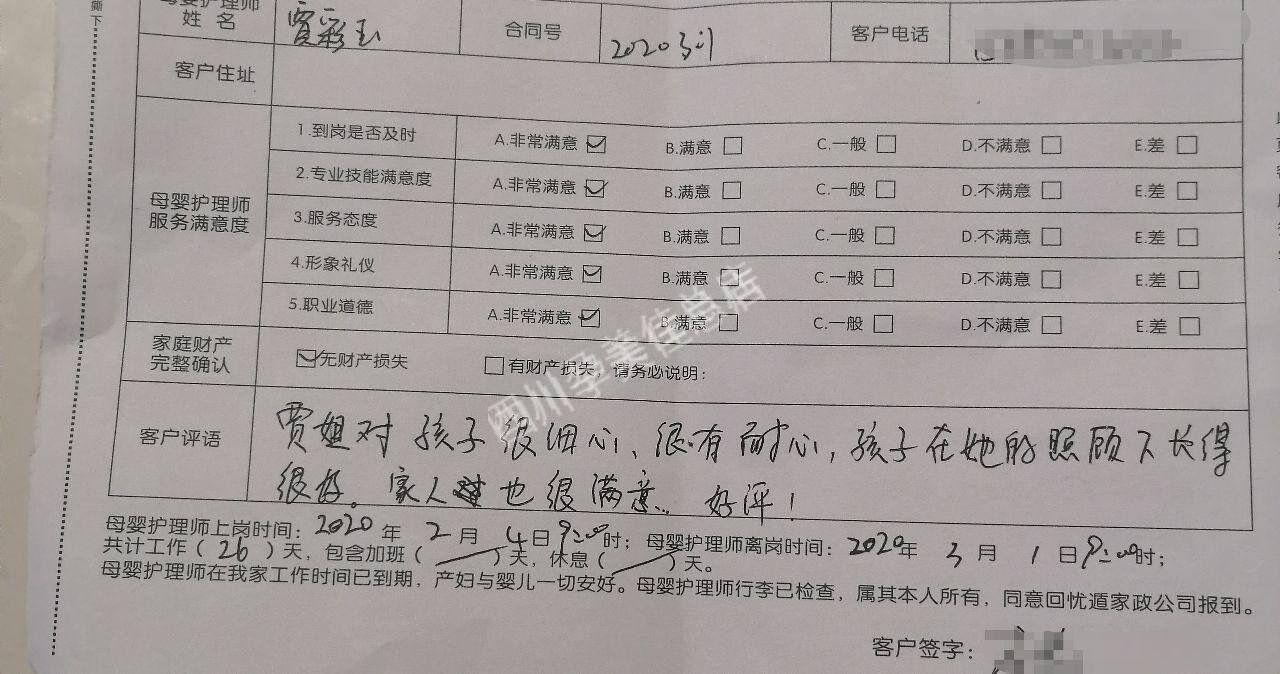 撕下
母婴护理师姓名 贾彩玉 合同号 2020 客户电话
客户住址
母婴护理师服务满意度
1.到岗是否及时 A.非常满意☑ B.满意□ C.一般□ D.不满意□ E.差□
2.专业技能满意度 A.非常满意☑ B.满意□ C.一般□ D.不满意□ E.差□
3.服务态度 A.非常满意☑ B.满意□ C.一般□ D.不满意□ E.差□
4.形象礼仪 A.非常满意☑ B.满意□ C.一般□ D.不满意□ E.差□
5.职业道德 A.非常满意☑ B.满意□ C.一般□ D.不满意□ E.差□
家庭财产完整确认 ☑无财产损失 □有财产损失，请务必说明：
客户评语
贾姐对孩子很细心、很有耐心，孩子在她的照顾下长得
很好。家人也很满意。好评！
母婴护理师上岗时间：2020年2月4日9:00时；母婴护理师离岗时间：2020年3月1日9:00时；
共计工作（26）天，包含加班（ ）天，休息（ ）天。
母婴护理师在我家工作时间已到期，产妇与婴儿一切安好。母婴护理师行李已检查，属其本人所有，同意回忧遁家政公司报到。
客户签字：
州孕美佳总店